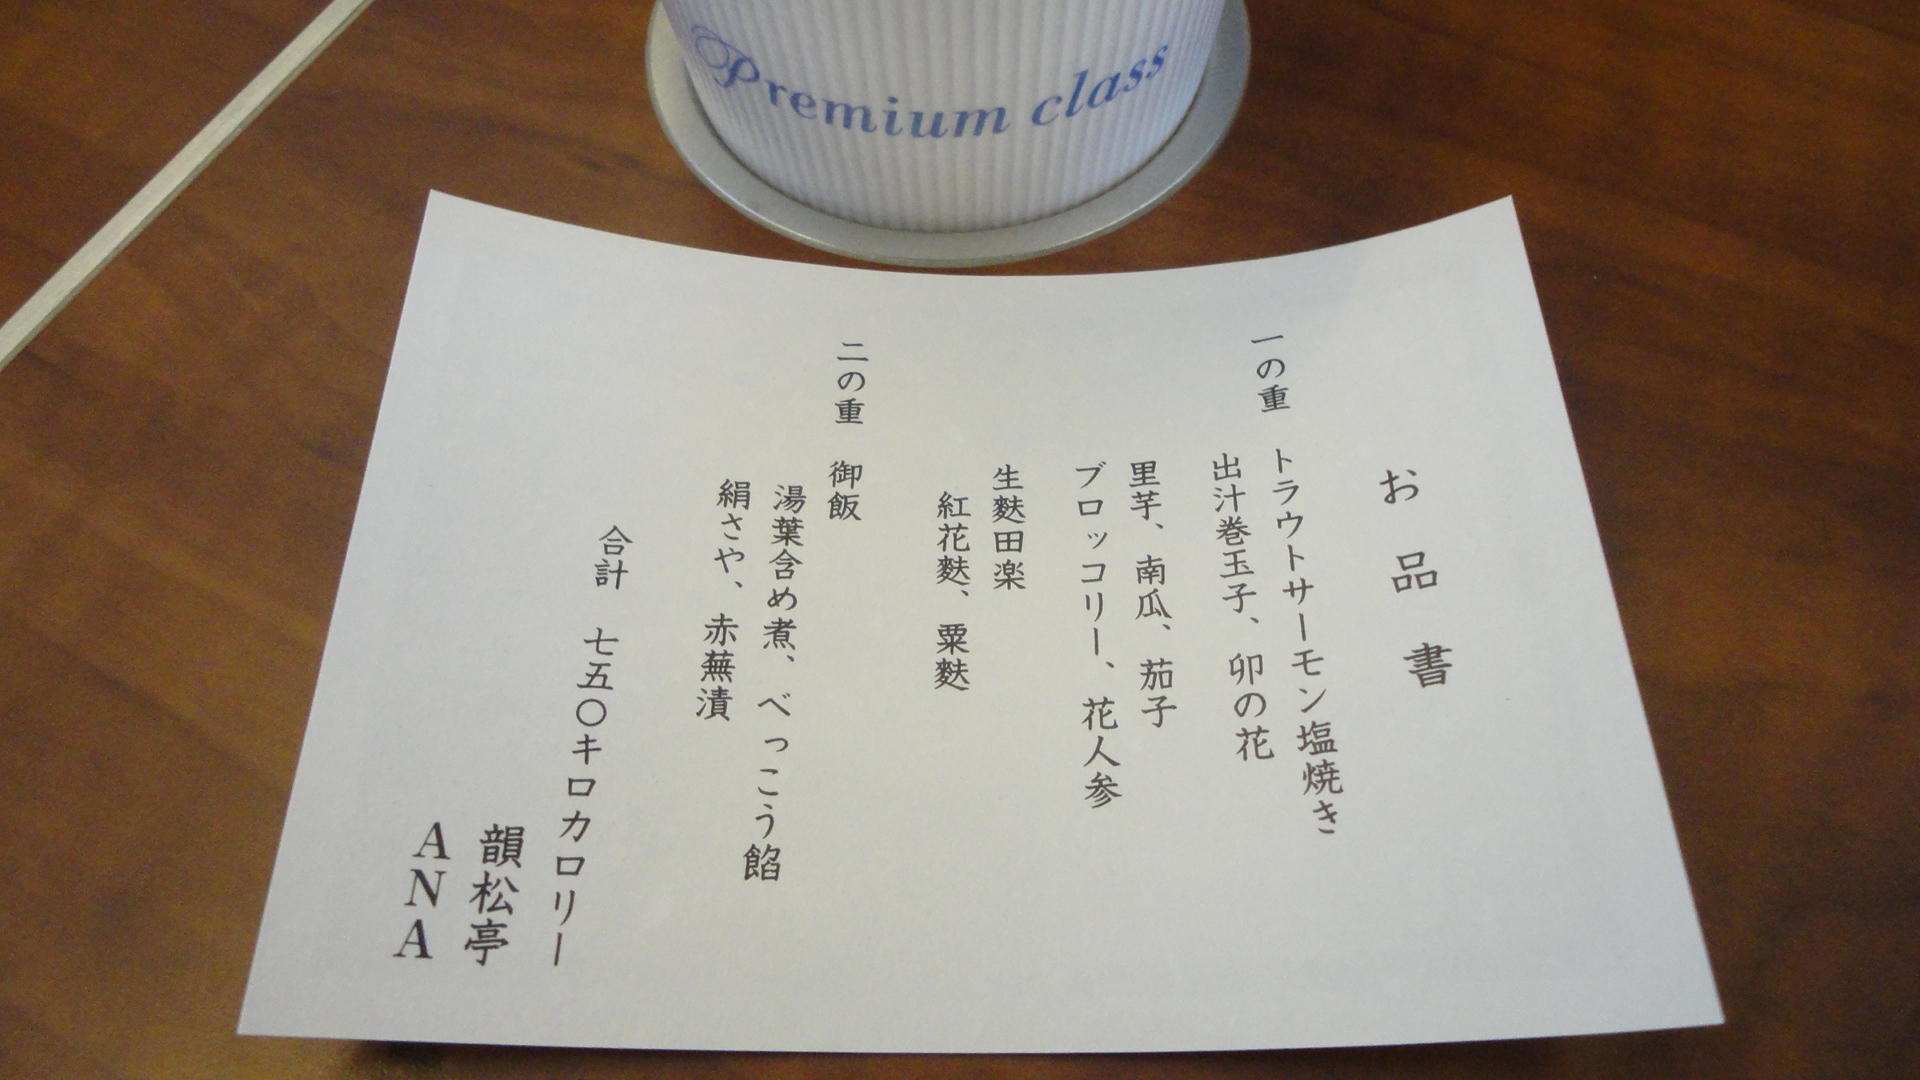 Premium class
お品書
一の重 トラウトサーモン塩焼き
出汁巻玉子、卯の花
里芋、南瓜、茄子
ブロッコリー、花人参
生麩田楽
紅花麩、粟麩
二の重 御飯
湯葉含め煮、べっこう餡
絹さや、赤蕪漬
合計 七五〇キロカロリー
韻松亭
ANA